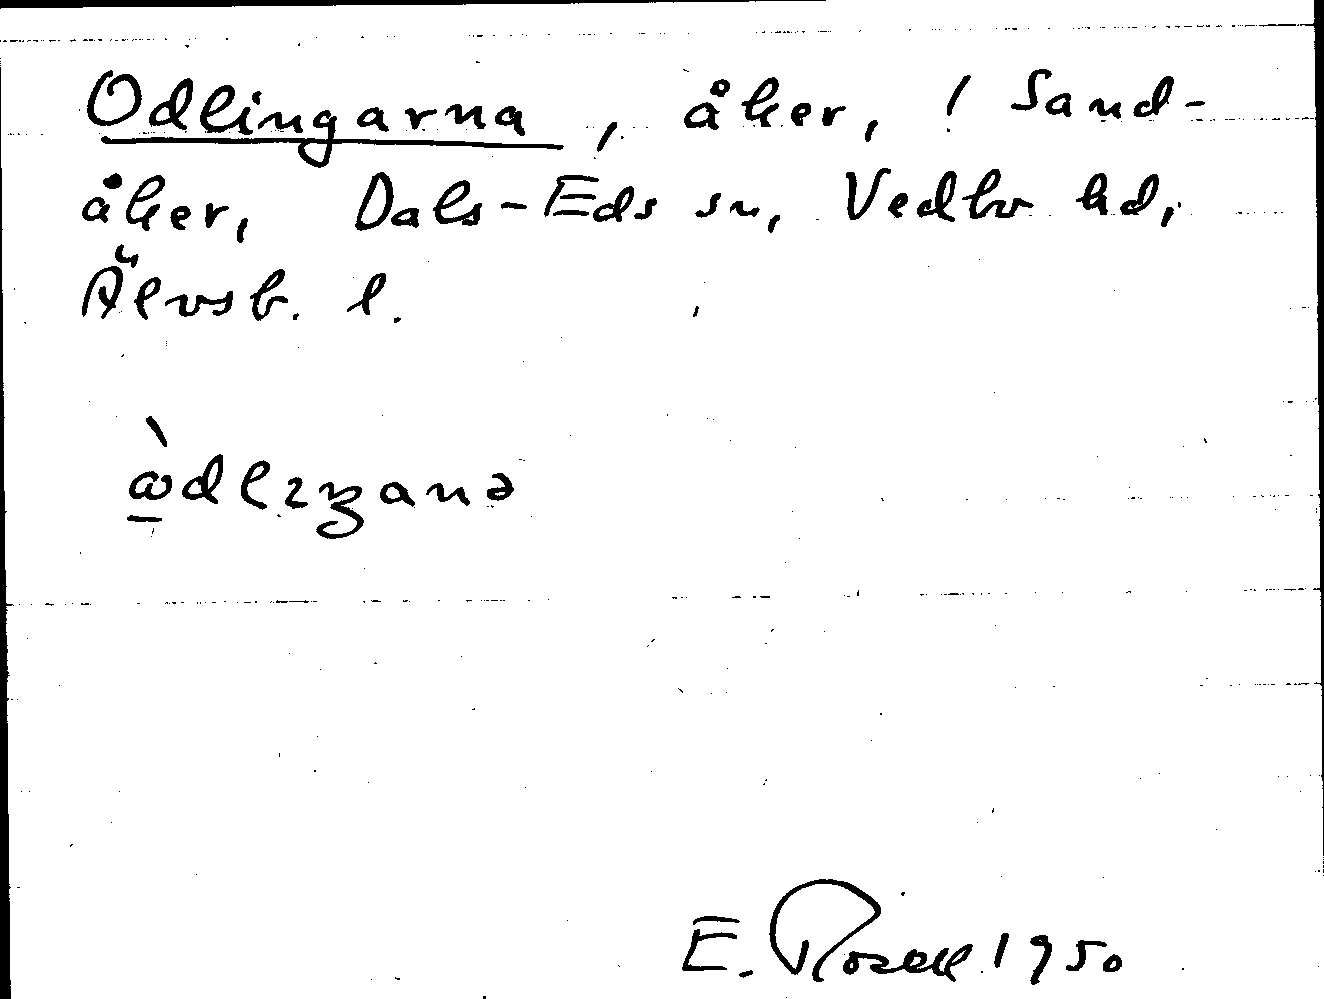 Odlingarna, åker, / Sand-
åker, Dals-Eds sn, Vedbo hd,
Älvsb. l.
E. Rosell 1950